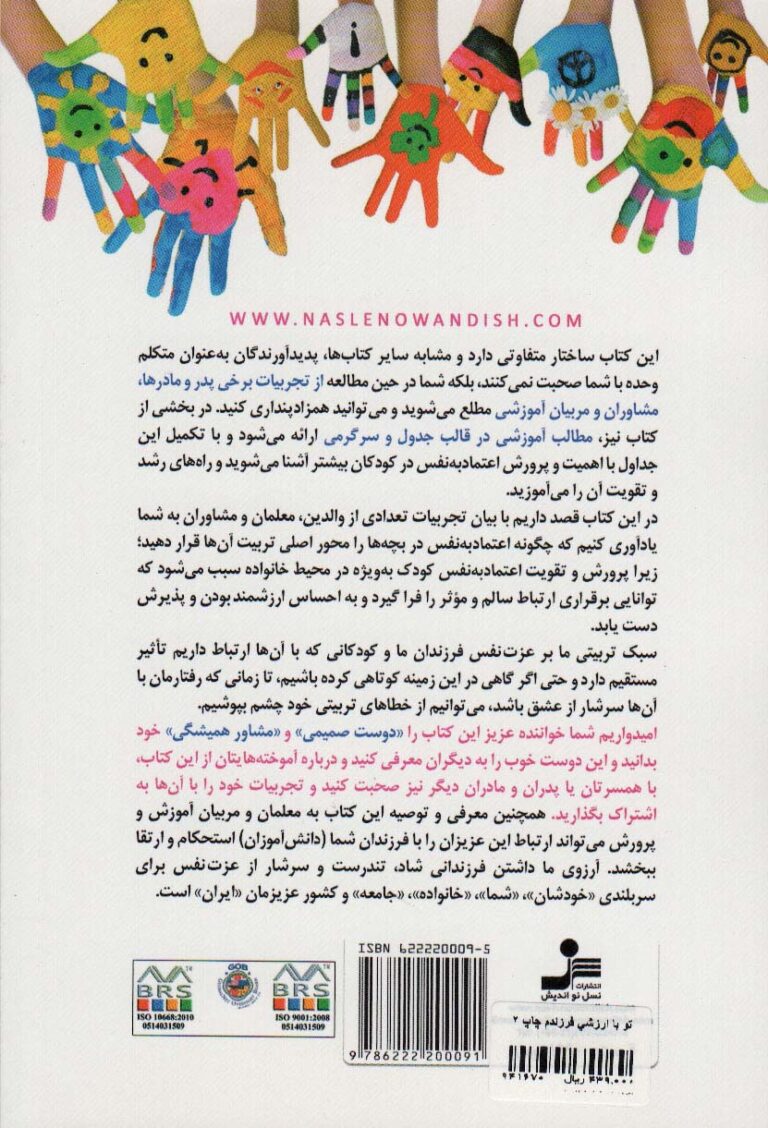 WWW.NASLENOWANDISH.COM
این کتاب ساختار متفاوتی دارد و مشابه سایر کتاب‌ها، پدیدآورندگان به‌عنوان متکلم
وحده با شما صحبت نمی‌کنند، بلکه شما در حین مطالعه از تجربیات برخی پدر و مادرها،
مشاوران و مربیان آموزشی مطلع می‌شوید و می‌توانید همزادپنداری کنید. در بخشی از
کتاب نیز، مطالب آموزشی در قالب جدول و سرگرمی ارائه می‌شود و با تکمیل این
جداول با اهمیت و پرورش اعتمادبه‌نفس در کودکان بیشتر آشنا می‌شوید و راه‌های رشد
و تقویت آن را می‌آموزید.
در این کتاب قصد داریم با بیان تجربیات تعدادی از والدین، معلمان و مشاوران به شما
یادآوری کنیم که چگونه اعتمادبه‌نفس در بچه‌ها را محور اصلی تربیت آن‌ها قرار دهید؛
زیرا پرورش و تقویت اعتمادبه‌نفس کودک به‌ویژه در محیط خانواده سبب می‌شود که
توانایی برقراری ارتباط سالم و مؤثر را فرا گیرد و به احساس ارزشمندبودن و پذیرش
دست یابد.
سبک تربیتی ما بر عزت‌نفس فرزندان ما و کودکانی که با آن‌ها ارتباط داریم تأثیر
مستقیم دارد و حتی اگر گاهی در این زمینه کوتاهی کرده باشیم، تا زمانی که رفتارمان با
آن‌ها سرشار از عشق باشد، می‌توانیم از خطاهای تربیتی خود چشم بپوشیم.
امیدواریم شما خواننده عزیز این کتاب را «دوست صمیمی» و «مشاور همیشگی» خود
بدانید و این دوست خوب را به دیگران معرفی کنید و درباره آموخته‌هایتان از این کتاب،
با همسرتان یا پدران و مادران دیگر نیز صحبت کنید و تجربیات خود را با آن‌ها به
اشتراک بگذارید. همچنین معرفی و توصیه این کتاب به معلمان و مربیان آموزش و
پرورش می‌تواند ارتباط این عزیزان را با فرزندان شما (دانش‌آموزان) استحکام و ارتقا
ببخشد. آرزوی ما داشتن فرزندانی شاد، تندرست و سرشار از عزت‌نفس برای
سربلندی «خودشان»، «شما»، «خانواده»، «جامعه» و کشور عزیزمان «ایران» است.
انتشارات
نسل نو اندیش
ISBN 622220009-5
9 786222 200091
BRS
ISO 10668:2010
0514031509
GOB
BRS
ISO 9001:2008
0514031509
تو با ارزشي فرزندم چاپ ۲
۴۳۹.۰۰۰ ریال
۹۴۱۶۷۰